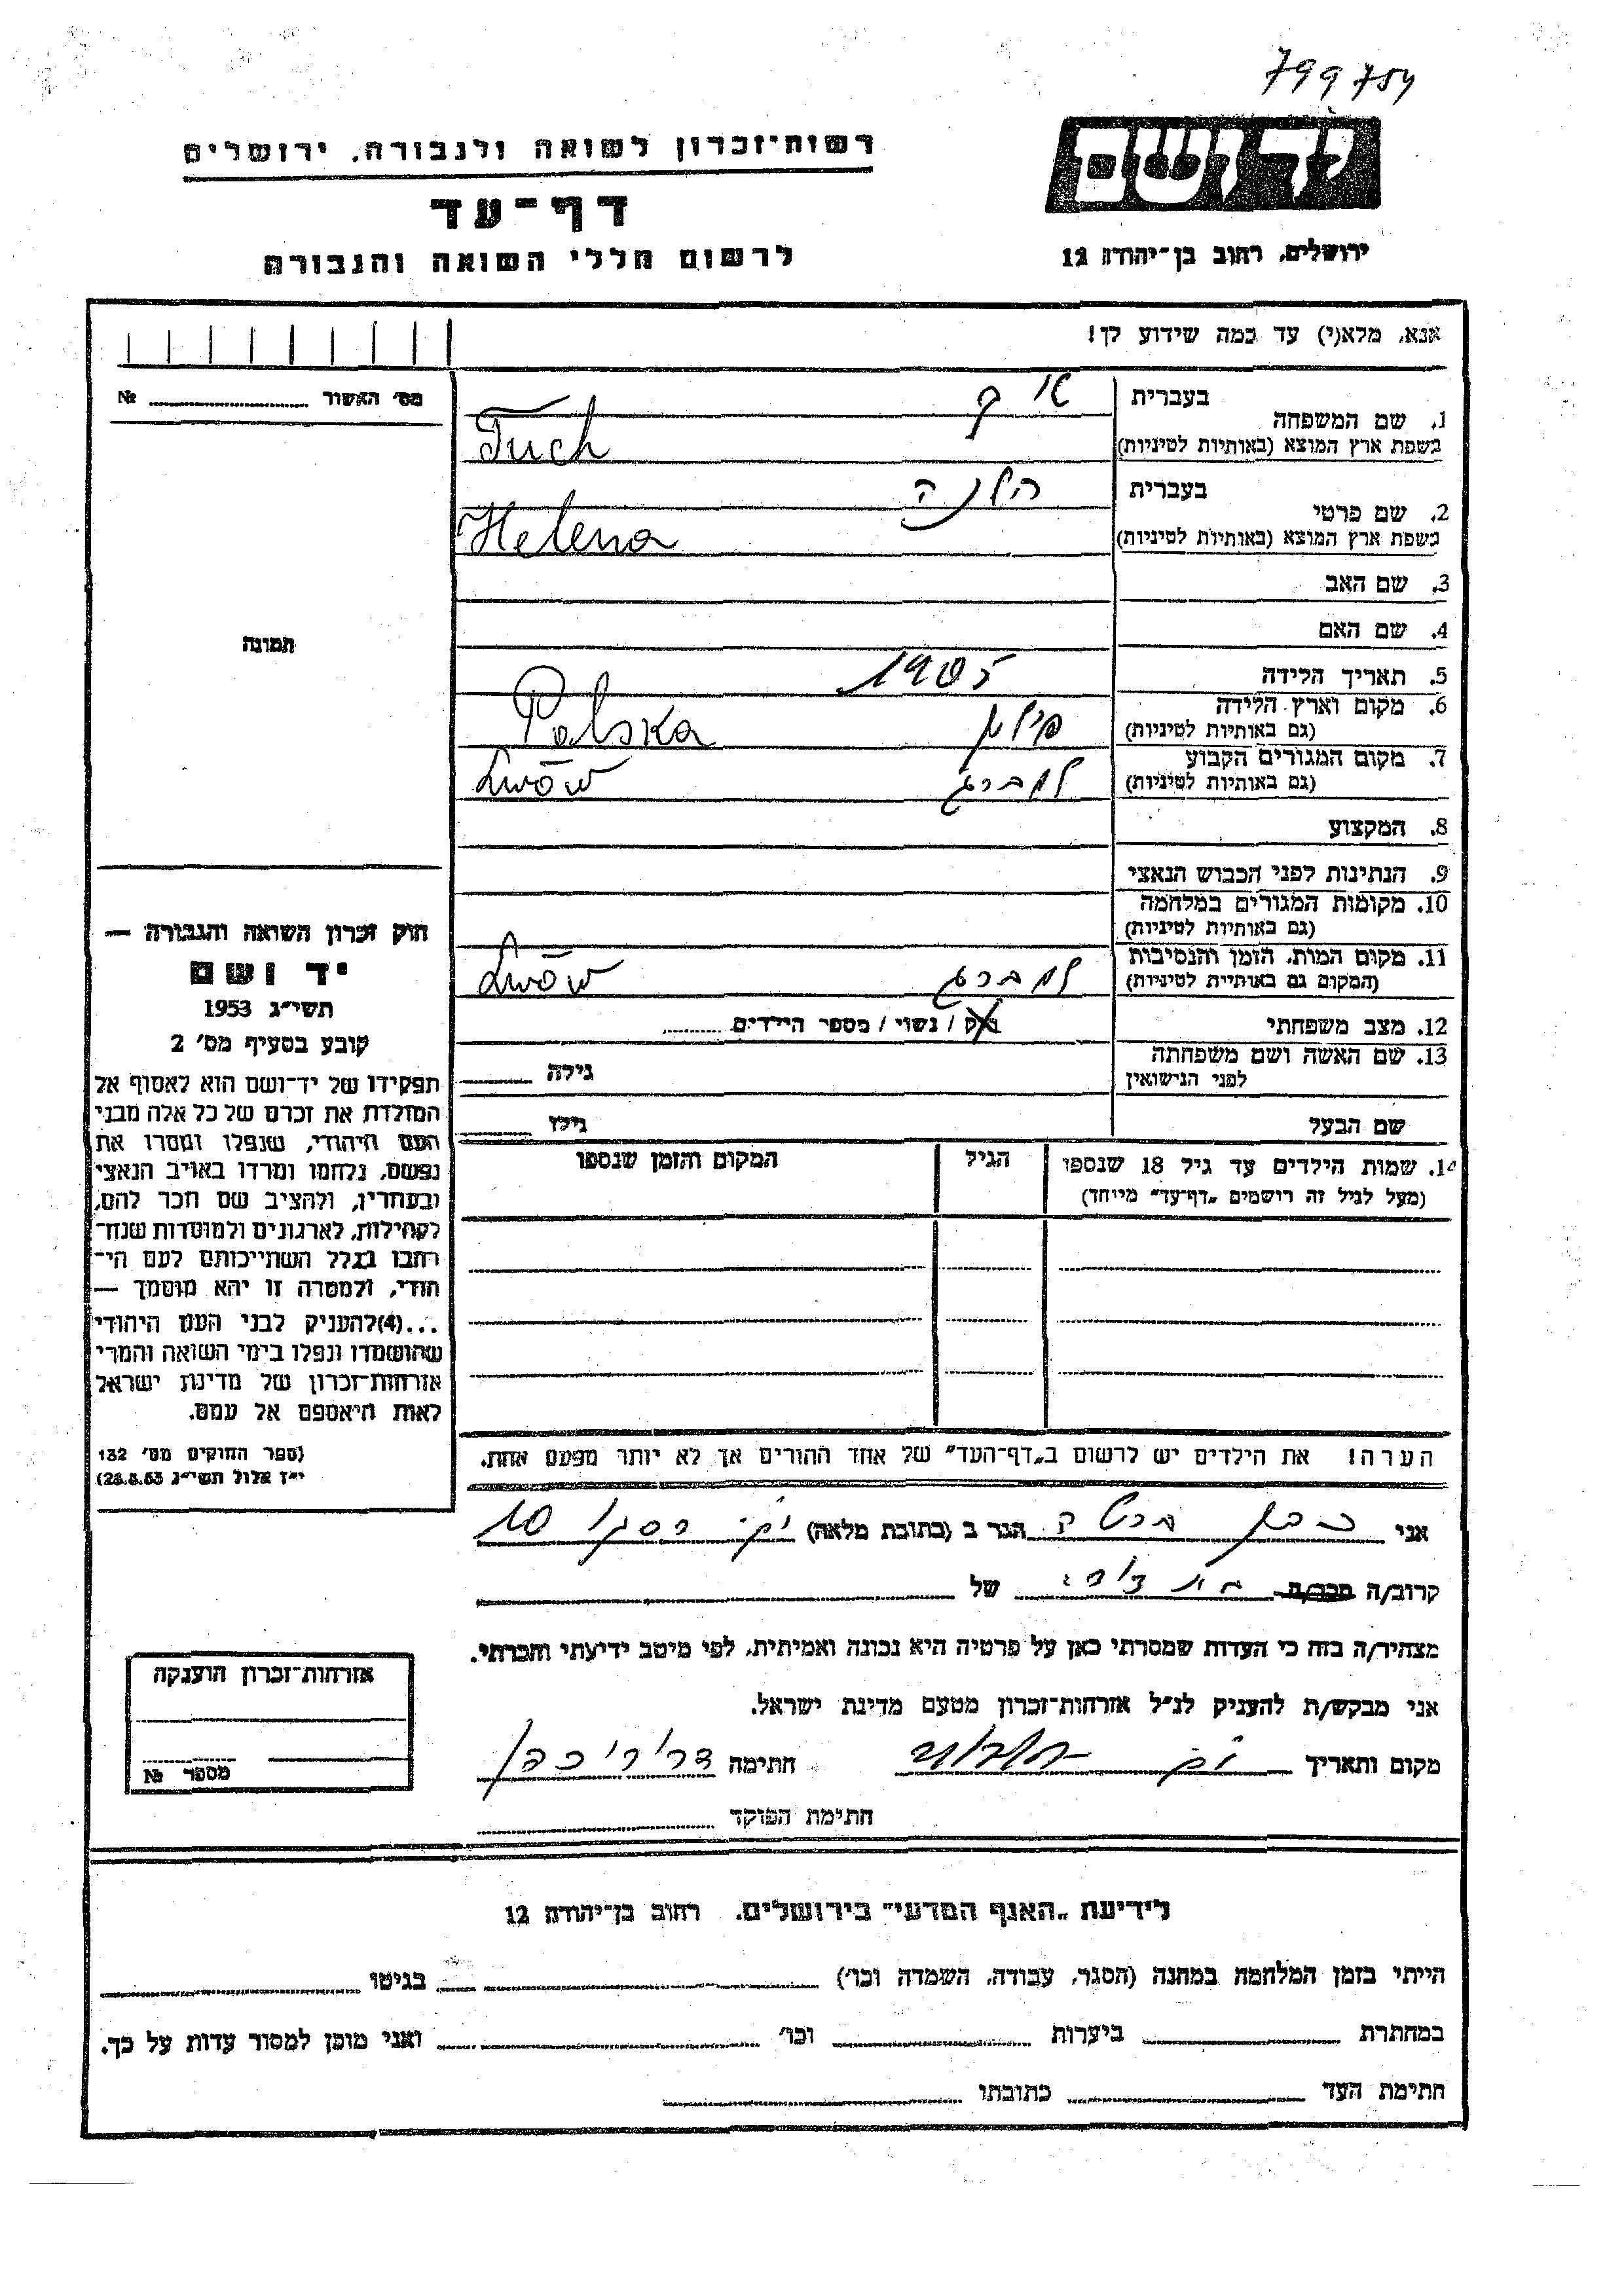 799754
יד ושם
רשות־זכרון לשואה ולגבורה, ירושלים
דף־עד
לרשום חללי השואה והגבורה
ירושלים, רחוב בן־יהודה 12
אנא, מלא(י) עד כמה שידוע לך!
מס׳ האשור № 
בעברית
1. שם המשפחה
בשפת ארץ המוצא (באותיות לטיניות) Tuch
בעברית הלנה
2. שם פרטי
בשפת ארץ המוצא (באותיות לטיניות) Helena
3. שם האב
4. שם האם
תמונה
5. תאריך הלידה 1905
6. מקום וארץ הלידה
(גם באותיות לטיניות) פולין Polska
7. מקום המגורים הקבוע
(גם באותיות לטיניות) למברג Lwów
8. המקצוע
9. הנתינות לפני הכבוש הנאצי
10. מקומות המגורים במלחמה
(גם באותיות לטיניות)
11. מקום המות, הזמן והנסיבות
(המקום גם באותיית לטיניות) למברג Lwów
12. מצב משפחתי רוק / נשוי / מספר הילדים
13. שם האשה ושם משפחתה
לפני הנישואין גילה
שם הבעל גילו
14. שמות הילדים עד גיל 18 שנספו הגיל המקום והזמן שנספו
(מעל לגיל זה רושמים „דף־עד״ מייוחד)
חוק זכרון השואה והגבורה —
יד ושם
תשי״ג 1953
קובע בסעיף מס׳ 2
תפקידו של יד־ושם הוא לאסוף אל
המולדת את זכרם של כל אלה מבני
העם היהודי, שנפלו ומסרו את
נפשם, נלחמו ומרדו באויב הנאצי
ובעוזריו, ולהציב שם וזכר להם,
לקהילות, לארגונים ולמוסדות שנח־
רבו בגלל השתייכותם לעם הי־
הודי, ולמטרה זו יהא מוסמך —
...(4)להעניק לבני העם היהודי
שהושמדו ונפלו בימי השואה והמרי
אזרחות־זכרון של מדינת ישראל
לאות היאספם אל עמם.
(ספר החוקים מס׳ 132
י״ז אלול תשי״ג 28.8.53)
הערה! את הילדים יש לרשום ב„דף־העד״ של אחד ההורים אך לא יותר מפעם אחת.
אני ברטה הגר ב (כתובת מלאה) 10
קרוב/ה מכר/ה בת דודה של
מצהיר/ה בזה כי העדות שמסרתי כאן על פרטיה היא נכונה ואמיתית, לפי מיטב ידיעתי והכרתי.
אני מבקש/ת להעניק לנ״ל אזרחות־זכרון מטעם מדינת ישראל.
מקום ותאריך חתימה
חתימת הפוקד
אזרחות־זכרון הוענקה
מספר №
לידיעת „האגף המדעי״ בירושלים, רחוב בן־יהודה 12
הייתי בזמן המלחמה במחנה (הסגר, עבודה, השמדה וכו׳) בגיטו
במחתרת ביערות וכו׳ ואני מוכן למסור עדות על כך.
חתימת העד כתובתו